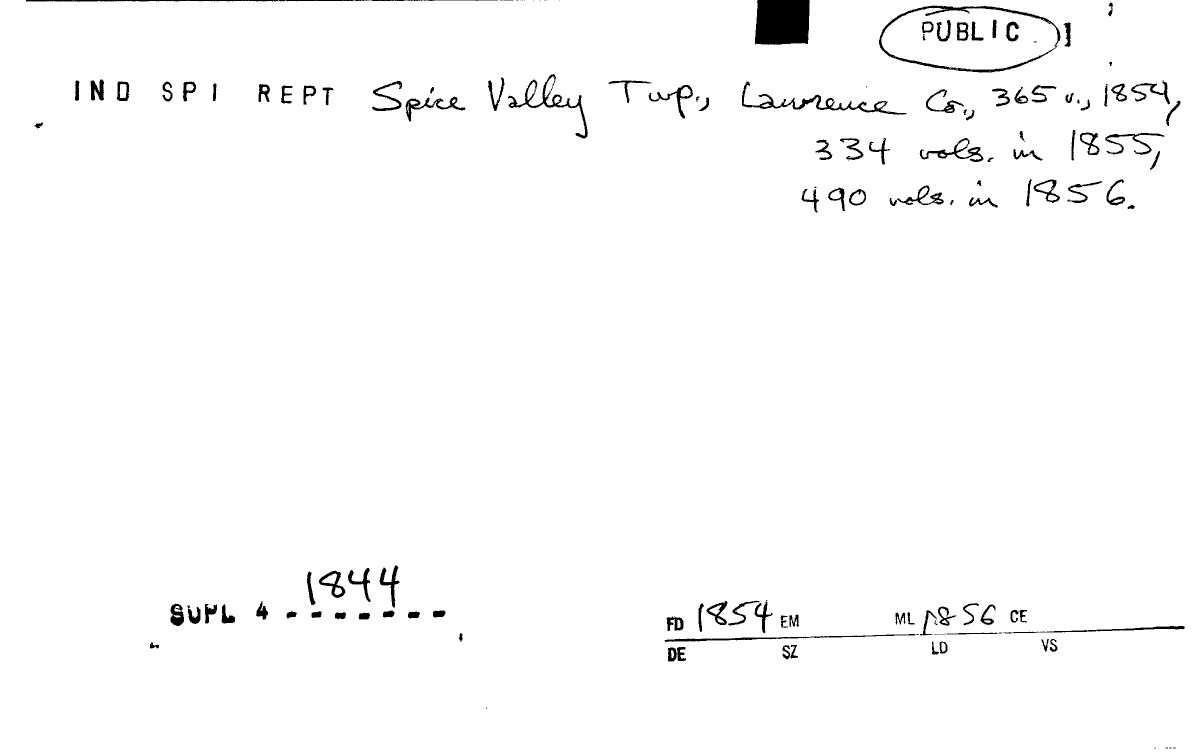 PUBLIC
IND SPI REPT Spice Valley Twp., Lawrence Co., 365 v., 1854,
334 vols. in 1855,
490 vols. in 1856.
1844
SUPL 4 - - - - - - -
FD 1854 EM ML 1856 CE
DE SZ LD VS